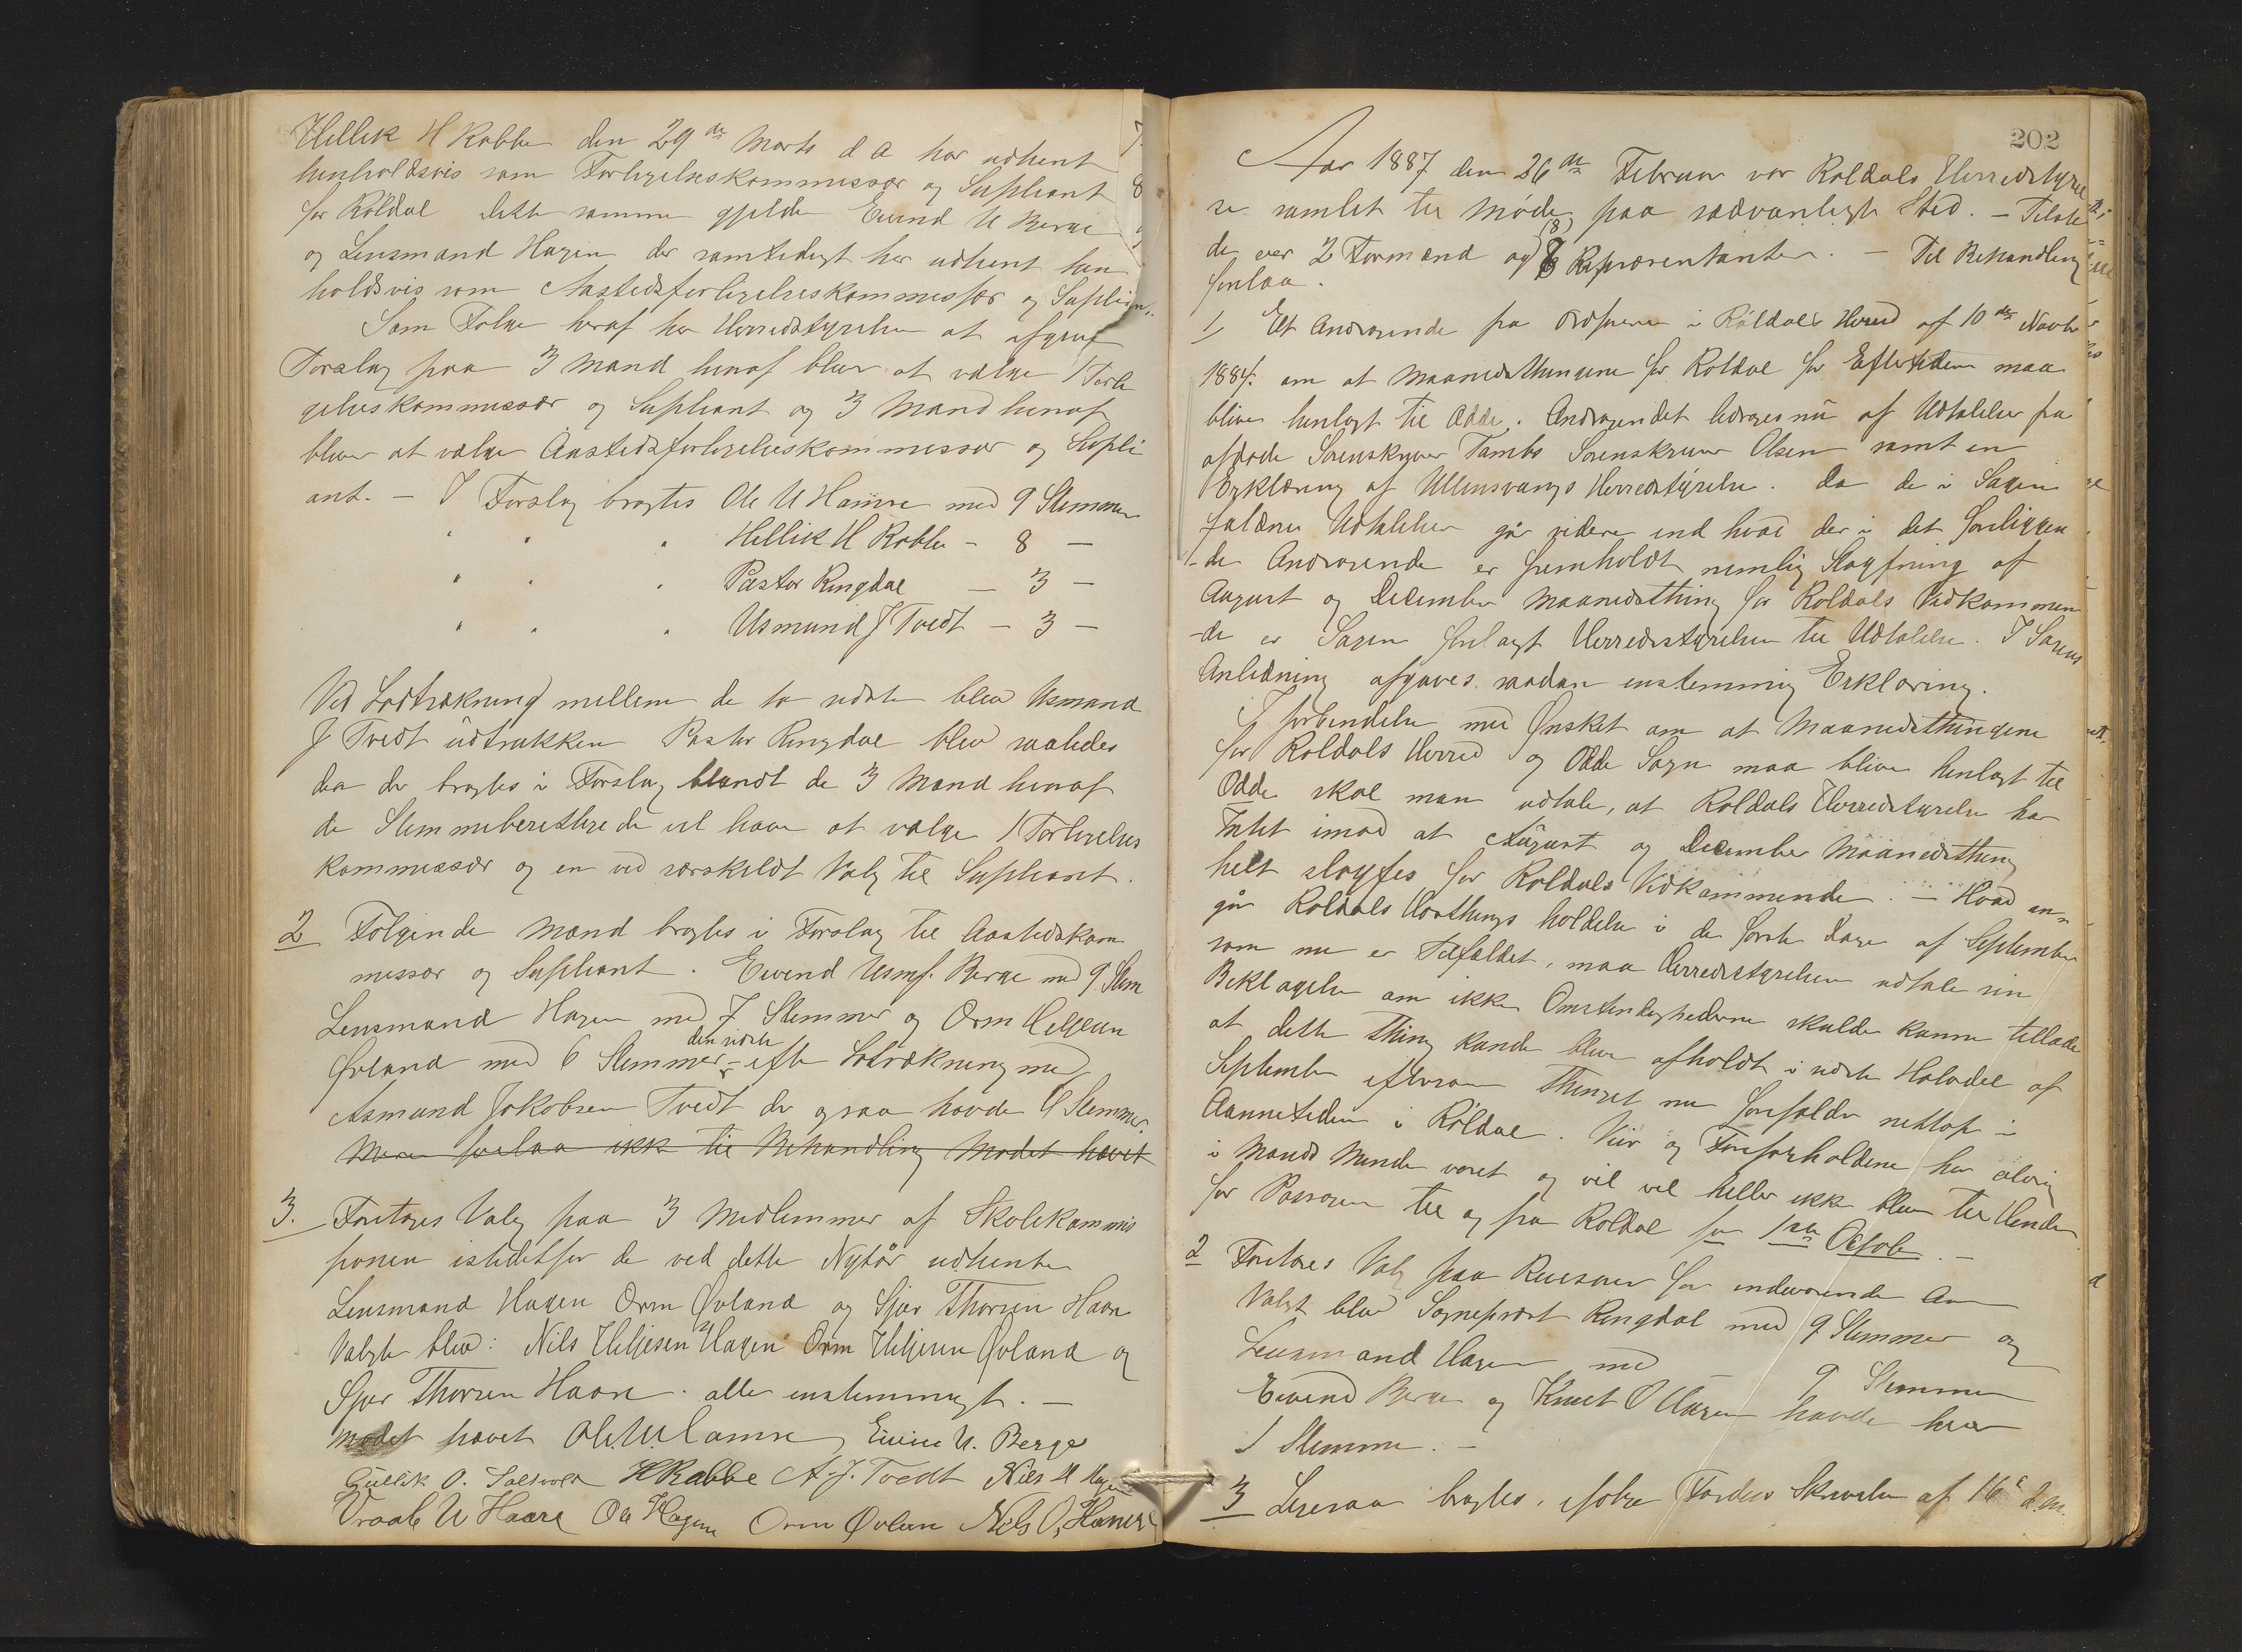 Hellik H Rabbe den 29de Marts d a har udtjent
henholdsvis som Forligelseskommissær og Supliant
for Röldal dette samme gjælde Eivind U Berge
og Lensmand Hagen der samtidigt har udtjent hen
holdsvis som Aastedsforligelseskommissær og Suplian
Som Følge heraf har Herredstyrelsen at afgive
Forslag paa 3 Mand hvoraf bliver at vælge 1 Forli
gelseskommissær og Supliant og 3 Mand hvoraf
bliver at vælge Aastedsforligelseskommissær og Supli
ant. - I Forslag bragtes Ole U Hamre med 9 Stemmer
" " " Hellik H Rabbe - 8 -
" " " Pastor Ringdal - 3 -
" " " Usmund J Tvedt - 3 -
Ved Lodtrækning mellem de to sidste blev Usmund
J Tvedt udtrukken Pastor Ringdal blev saaledes
den der bragtes i Forslag blandt de 3 Mand hvoraf
de Stemmeberettigede vil have at vælge 1 Forligelses
kommissær og en ved særskildt Valg til Supliant.
2 Følgende Mænd bragtes i Forslag til Aastedskom
missær og Supliant. Eivind Usmf. Berge med 9 Stem
Lensmand Hagen med 7 Stemmer og Orm Helgesen
den sidste
Øvland med 6 Stemmer - efter Lotrækning med
Asmund Jakobsen Tvedt der ogsaa havde 6 Stemmer.
Mere forelaa ikke til Behandling Mødet hævet
3. Foretoges Valg paa 3 Medlemmer af Skolekommis
sionen istedetfor de ved dette Nytår udtjente
Lensmand Hagen Orm Øvland og Sjur Thorsen Haare
Valgte blev: Nils Heljesen Hagen Orm Heljesen Øvland og
Sjur Thorsen Haare. alle enstemmigt. -
Mødet hævet Ole U Hamre, Eivin U. Berge
Gullik O. H Rabbe A. J. Tvedt Nils H Hagen
Vraal U Haare Ole Hagen Orm Øvland Nils O, Hamre
202
Aar 1887 den 26de Februar var Roldals Herredstyrel
se samlet til Møde paa sædvanligt Sted. - Tilste
(8)
de var 2 Formænd og 8 Repræsentanter. - Til Behandling
forelaa.
1, Et Andragende fra Ordføreren i Röldals Herred af 10de Novbr
1884. om at Maanedsthingene for Roldal for Eftertiden maa
blive henlagt til Odde. Andragendet ledsages nu af Udtalelser fra
afdøde Sorenskriver Tambs Sorenskriver Olsen samt en
Erklæring af Ullensvangs Herredstyrelse. Da de i Sagen
faldne Udtalelser går videre end hvad der i det foreliggen
-de Andragende er fremholdt nemlig Sløyfning af
August og December Maanedsthing for Roldals Vedkommen
-de er Sagen forelagt Herredsstyrelsen til Udtalelse. I Sagens
Anledning afgaves saadan enstemmig Erklæring.
I forbindelse med Ønsket om at Maanedsthingene
for Roldals Herred og Odde Sogn maa blive henlagt til
Odde skal man udtale, at Roldals Herredstyrelse har
Intet imod at August og December Maanedsthing
helt sløyfes for Roldals Vedkommende. - Hvad an-
går Roldals Høstthings holdelse i de første Dage af September
som nu er Tilfældet, maa Herredsstyrelsen udtale sin
Beklagelse om ikke Omstendighederne skulde kunne tillade
at dette Thing kunde blive afholdt i sidste Halvdel af
September eftersom Thinget nu forefalder nettop i
Aannetiden i Röldal. Veir og Føreforholdene har aldrig
i Mands Minde været og vil vel heller ikke blive til Hinder
for Passagen til og fra Roldal før 1ste October. -
2 Foretoges Valg paa Revisorer for indeværende Aar
Valgt blev Sogneprest Ringdal med 9 Stemmer og
Lensmand Hagen med 9 Stemmer
Eivind Berge og Knut O Hagen havde hver
1 Stemme. -
3 Ligesaa bragtes, ifølge Fordres Skrivelse af 16e d.m.